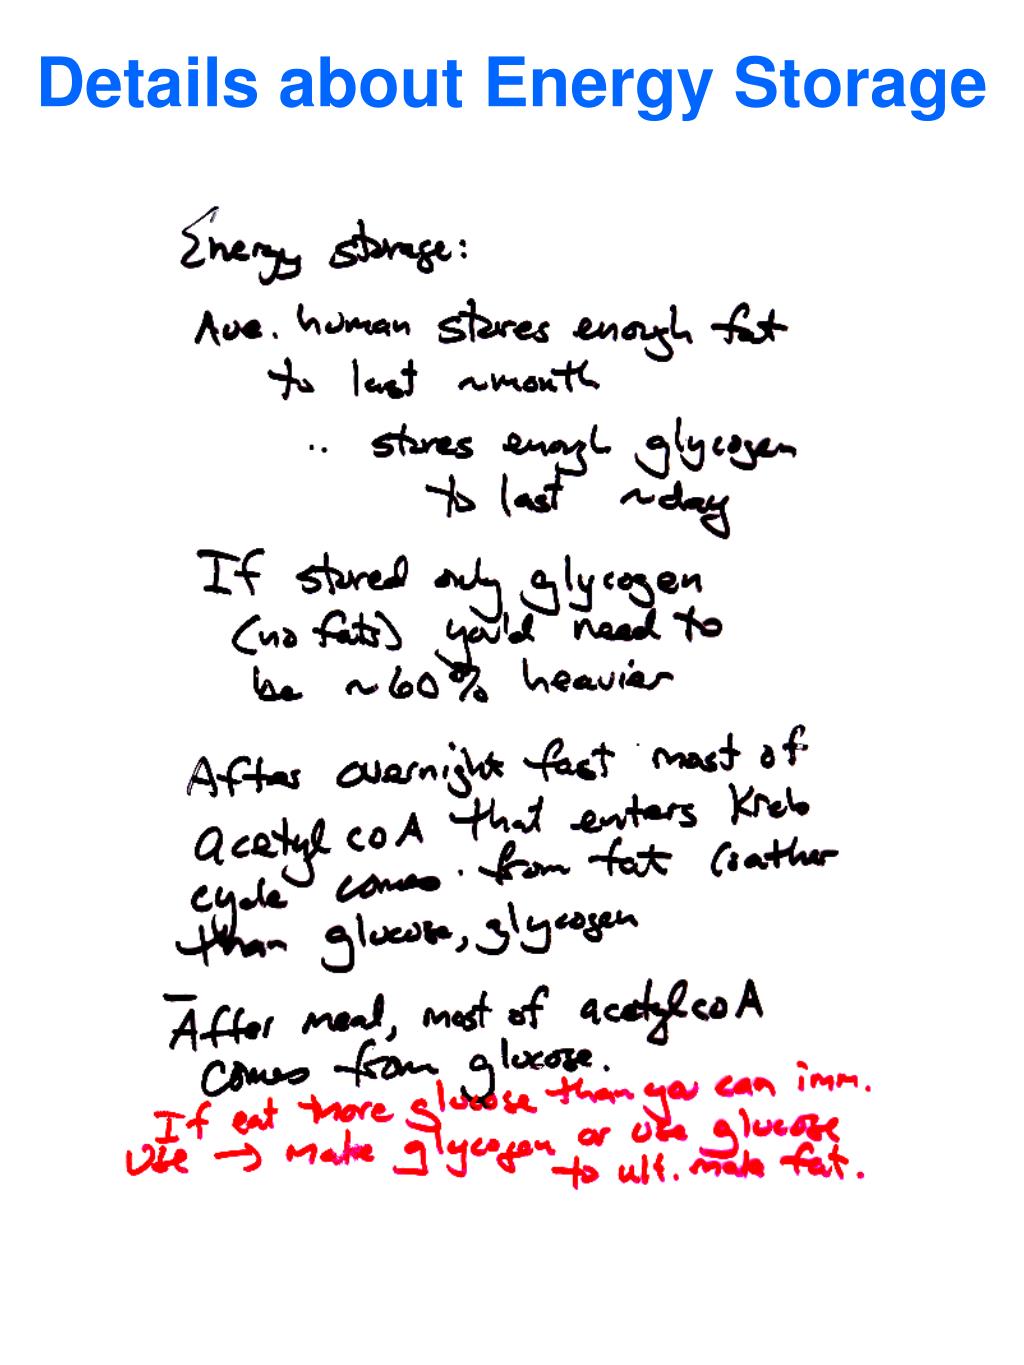 Details about Energy Storage
Energy storage:
Ave. human stores enough fat
to last ~month
.. stores enough glycogen
to last ~day
If stored only glycogen
(no fats) you'd need to
be ~60% heavier
After overnight fast most of
acetyl coA that enters Kreb
cycle comes from fat (rather
than glucose, glycogen
After meal, most of acetyl coA
comes from glucose.
If eat more glucose than you can imm.
use → make glycogen or use glucose
to ult. make fat.